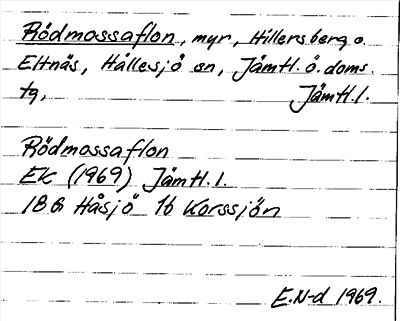 Rödmossaflon, myr, Hillersberg o.
Eltnäs, Hällesjö sn, Jämtl. ö. doms.
tg, Jämtl. l.
Rödmossaflon
EK (1969) Jämtl. l.
18G Håsjö 1b Korssjön
E.N-d 1969.